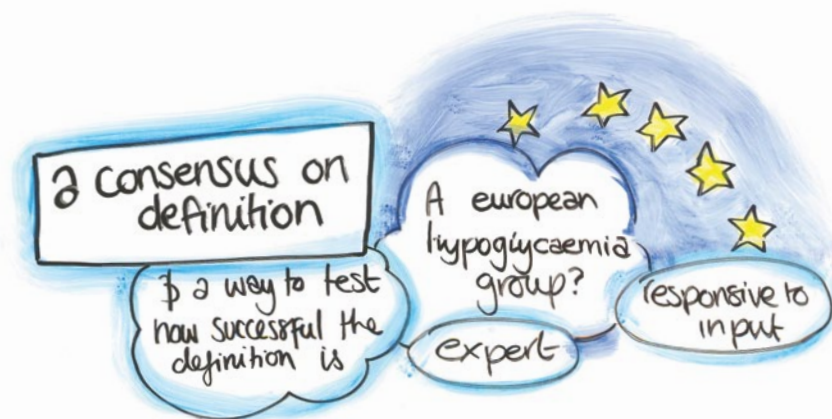 a consensus on
definition
& a way to test
how successful the
definition is
A european
hypoglycaemia
group?
expert
responsive to
input